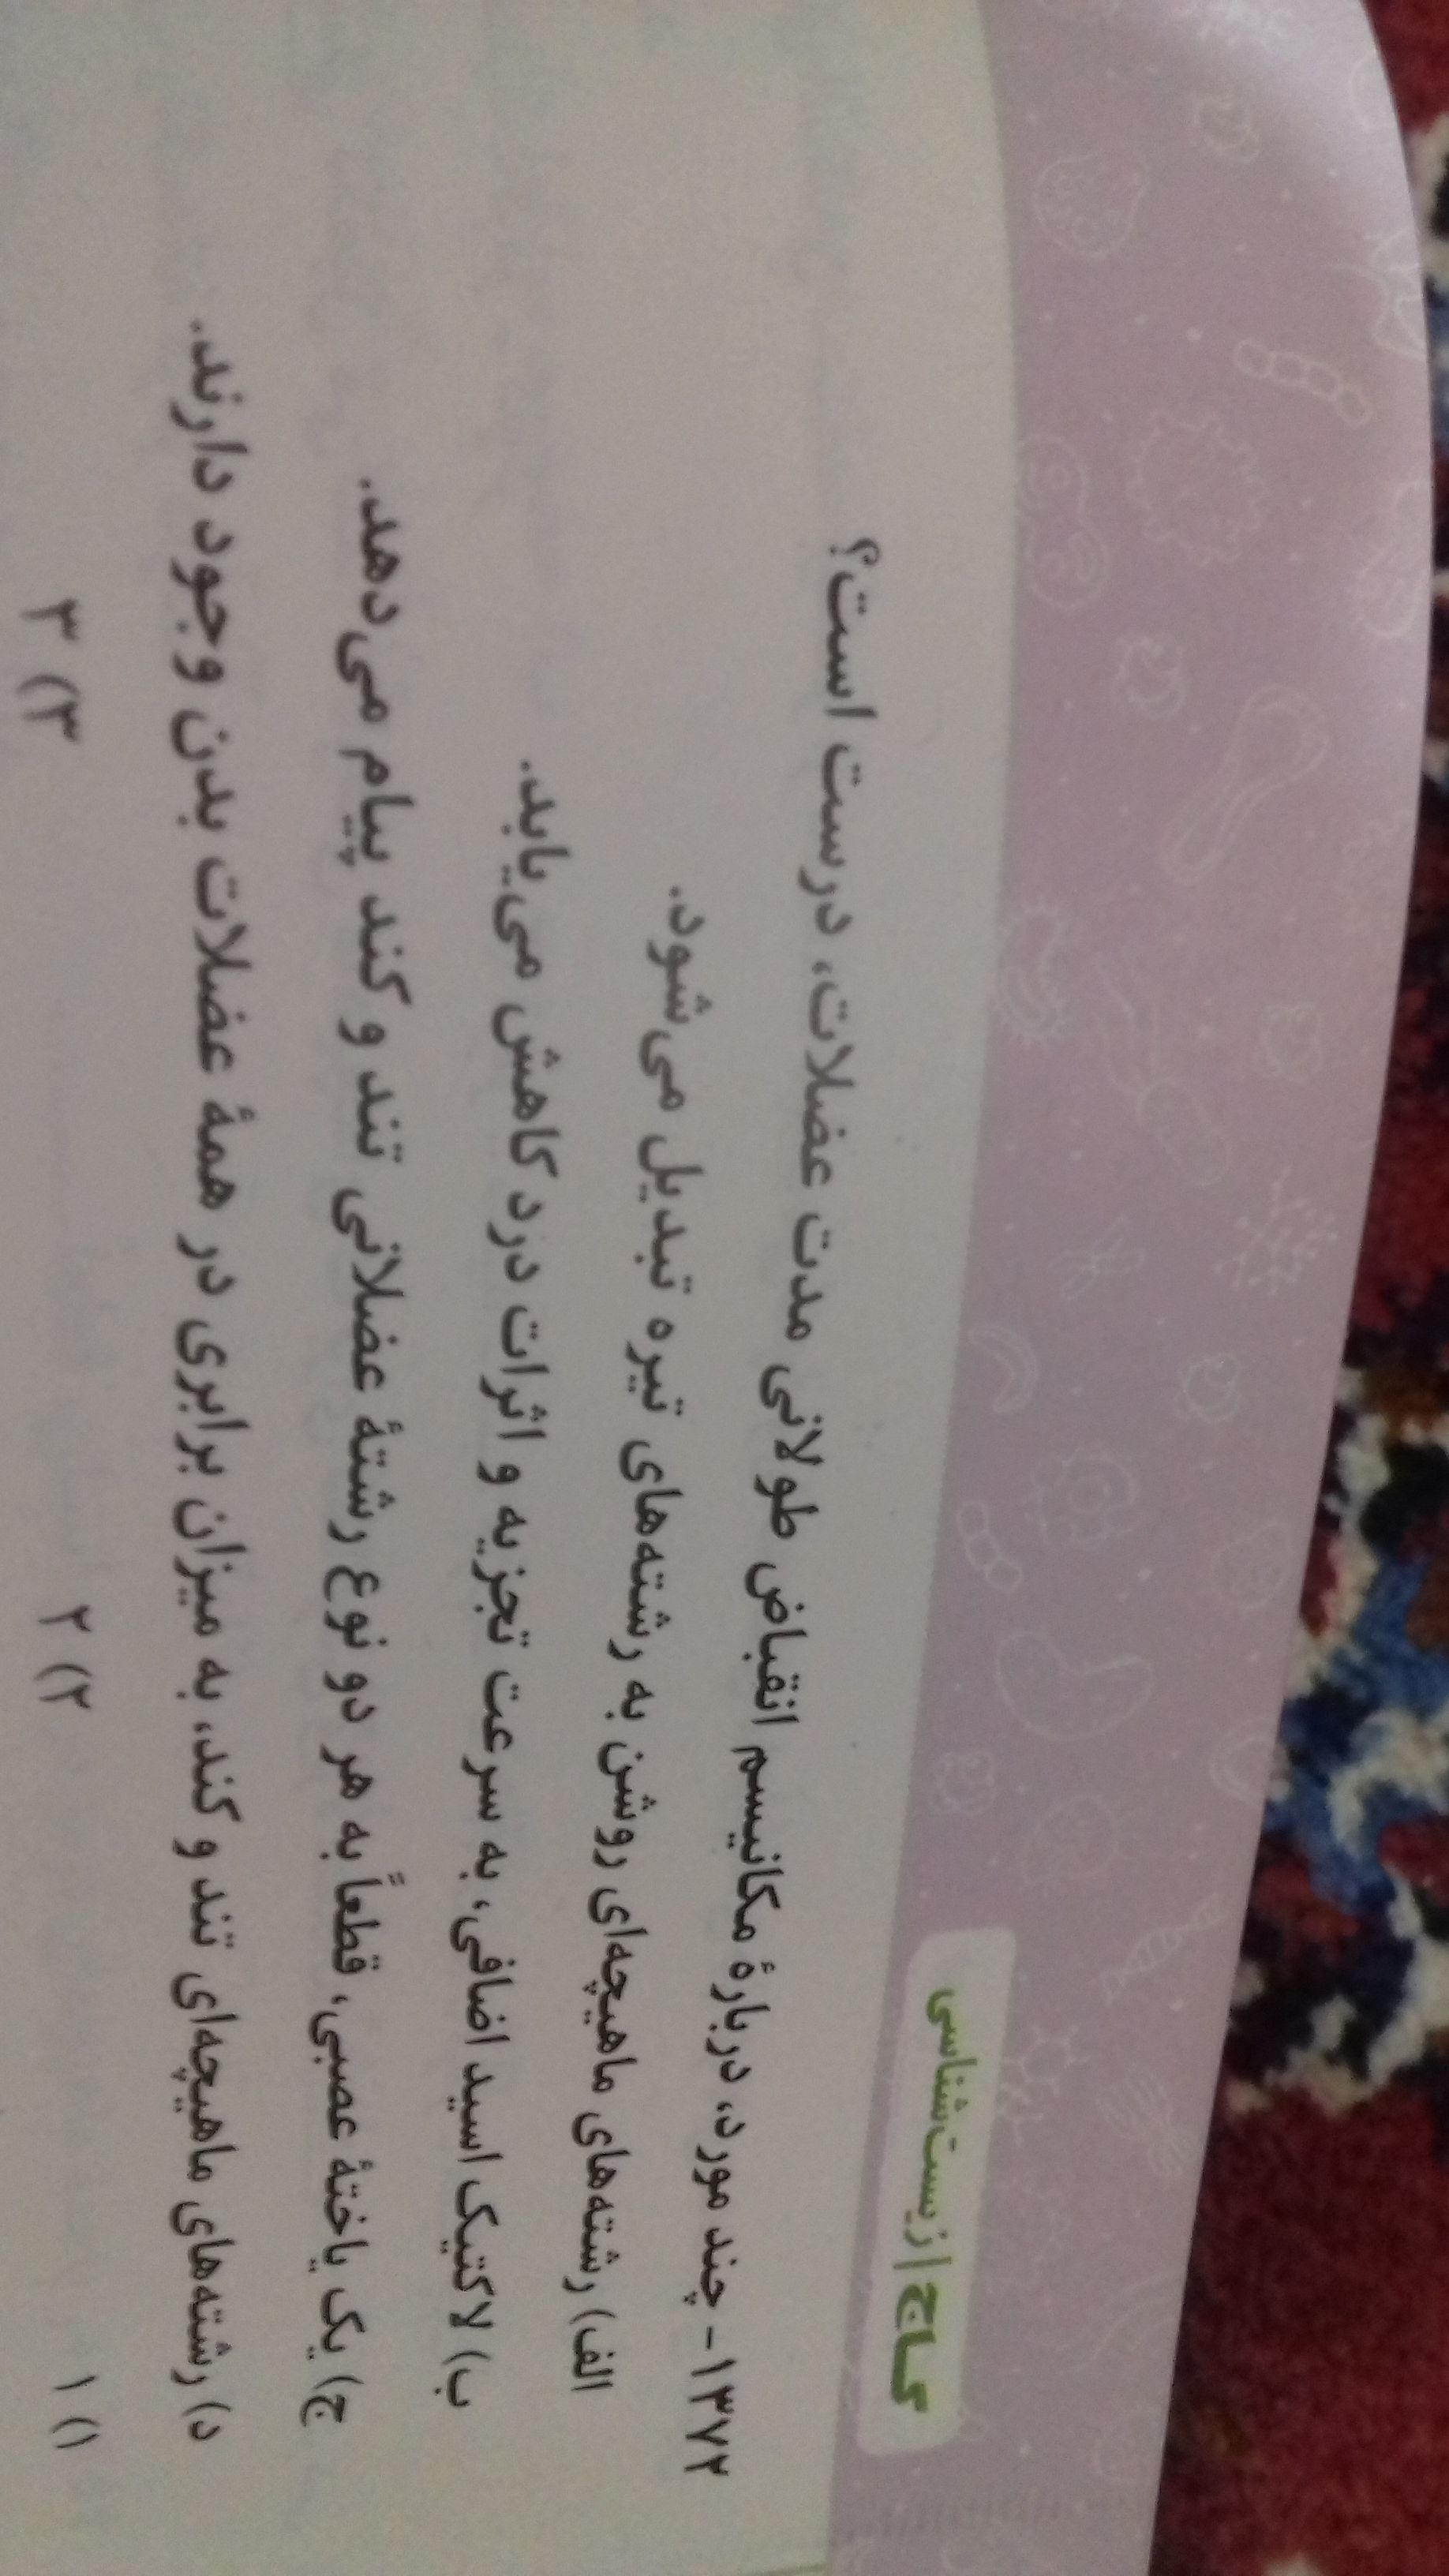 گاج | زیست‌شناسی
۱۳۷۲- چند مورد، دربارهٔ مکانیسم انقباض طولانی مدت عضلات، درست است؟
الف) رشته‌های ماهیچه‌ای روشن به رشته‌های تیره تبدیل می‌شود.
ب) لاکتیک اسید اضافی، به سرعت تجزیه و اثرات درد کاهش می‌یابد.
ج) یک یاختهٔ عصبی، قطعاً به هر دو نوع رشتهٔ عضلانی تند و کند پیام می‌دهد.
د) رشته‌های ماهیچه‌ای تند و کند، به میزان برابری در همهٔ عضلات بدن وجود دارند.
۱) ۱ ۲) ۲ ۳) ۳